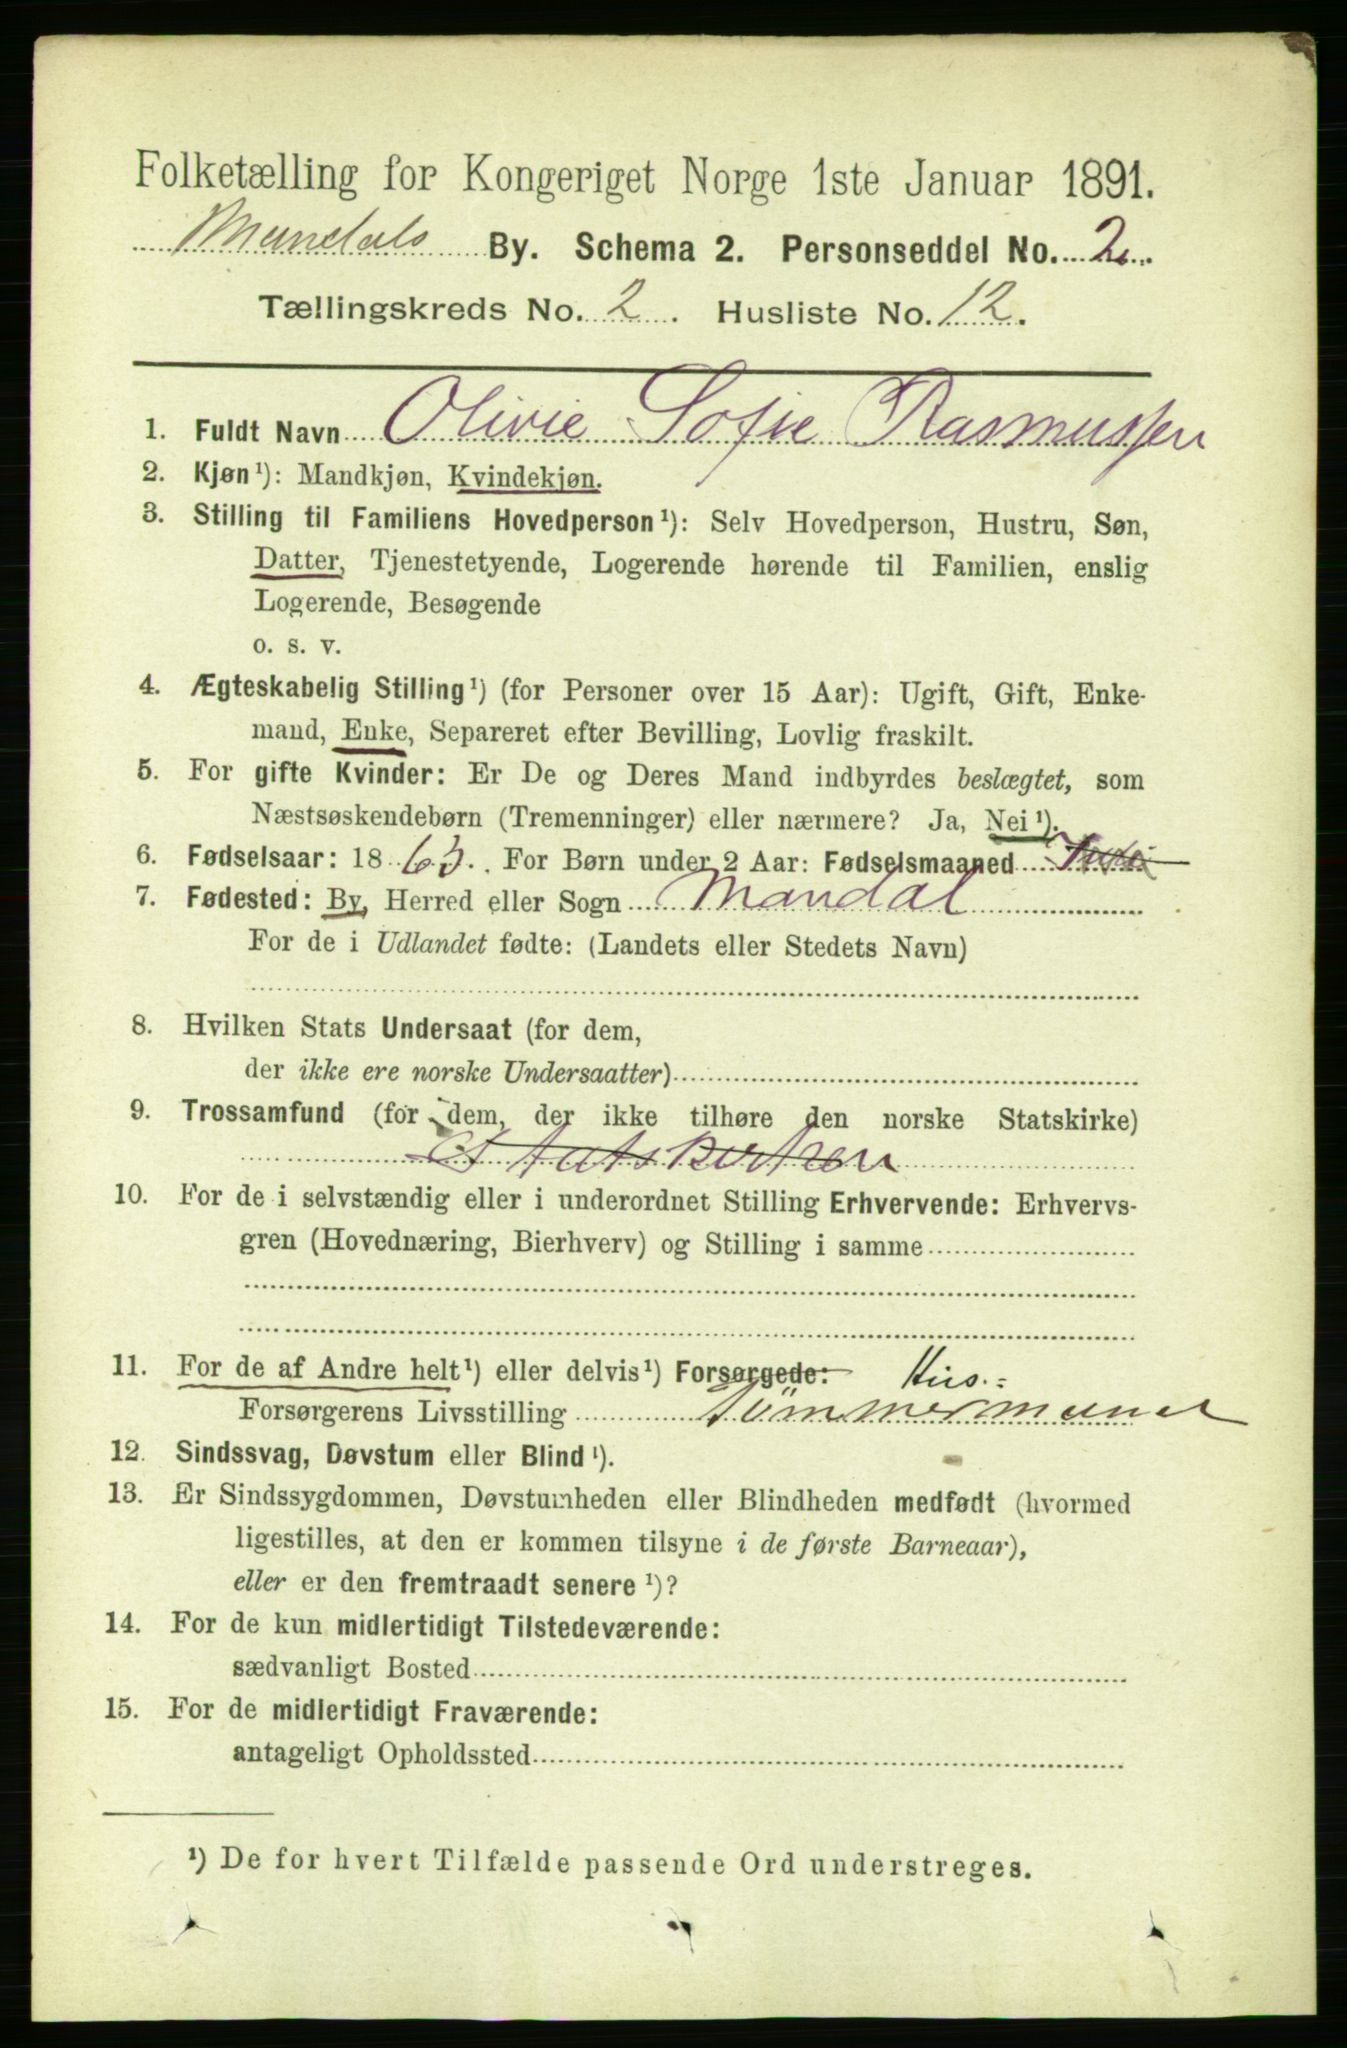 Folketælling for Kongeriget Norge 1ste Januar 1891.
Mandals By. Schema 2. Personseddel No. 2.
Tællingskreds No. 2. Husliste No. 12.
1. Fuldt Navn Olivie Sofie Rasmussen
2. Kjøn¹): Mandkjøn, Kvindekjøn.
3. Stilling til Familiens Hovedperson¹): Selv Hovedperson, Hustru, Søn,
Datter, Tjenestetyende, Logerende hørende til Familien, enslig
Logerende, Besøgende
o. s. v.
4. Ægteskabelig Stilling¹) (for Personer over 15 Aar): Ugift, Gift, Enke-
mand, Enke, Separeret efter Bevilling, Lovlig fraskilt.
5. For gifte Kvinder: Er De og Deres Mand indbyrdes beslægtet, som
Næstsøskendebørn (Tremenninger) eller nærmere? Ja, Nei¹).
6. Fødselsaar: 1863. For Børn under 2 Aar: Fødselsmaaned
7. Fødested: By, Herred eller Sogn Mandal
For de i Udlandet fødte: (Landets eller Stedets Navn)
8. Hvilken Stats Undersaat (for dem,
der ikke ere norske Undersaatter)
9. Trossamfund (for dem, der ikke tilhøre den norske Statskirke)
Statskirken
10. For de i selvstændig eller i underordnet Stilling Erhvervende: Erhvervs-
gren (Hovednæring, Bierhverv) og Stilling i samme
11. For de af Andre helt¹) eller delvis¹) Forsørgede: Hus.=
Forsørgerens Livsstilling Tömmermand
12. Sindssvag, Døvstum eller Blind¹).
13. Er Sindssygdommen, Døvstumheden eller Blindheden medfødt (hvormed
ligestilles, at den er kommen tilsyne i de første Barneaar),
eller er den fremtraadt senere¹)?
14. For de kun midlertidigt Tilstedeværende:
sædvanligt Bosted
15. For de midlertidigt Fraværende:
antageligt Opholdssted
¹) De for hvert Tilfælde passende Ord understreges.